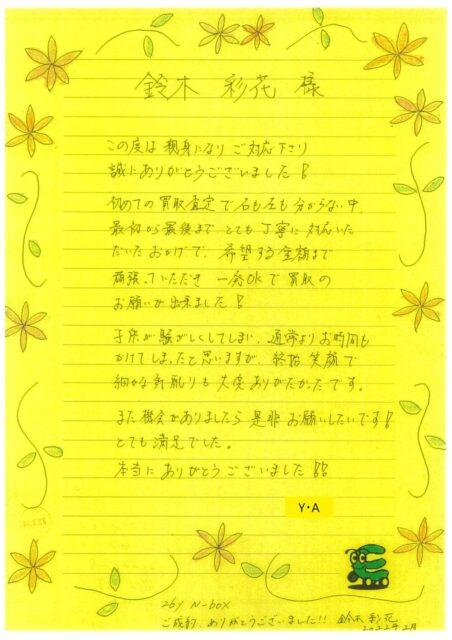 鈴木 彩花 様
この度は 親身になり ご対応下さり
誠にありがとうございました!
初めての買取査定で右も左も分からない中、
最初から最後まで とても丁寧に 対応いた
だいたおかげで、希望する金額まで
頑張っていただき 一発OKで買取の
お願いが出来ました!
子供が騒がしくしてしまい、通常よりお時間も
かけてしまったと思いますが、終始 笑顔で
細かな気配りも大変ありがたかったです。
また機会がありましたら 是非 お願いしたいです!
とても満足でした。
本当に ありがとうございました!!
Y・A
26y N-box
ご成約、ありがとうございました!! 鈴木 彩花
2022年2月